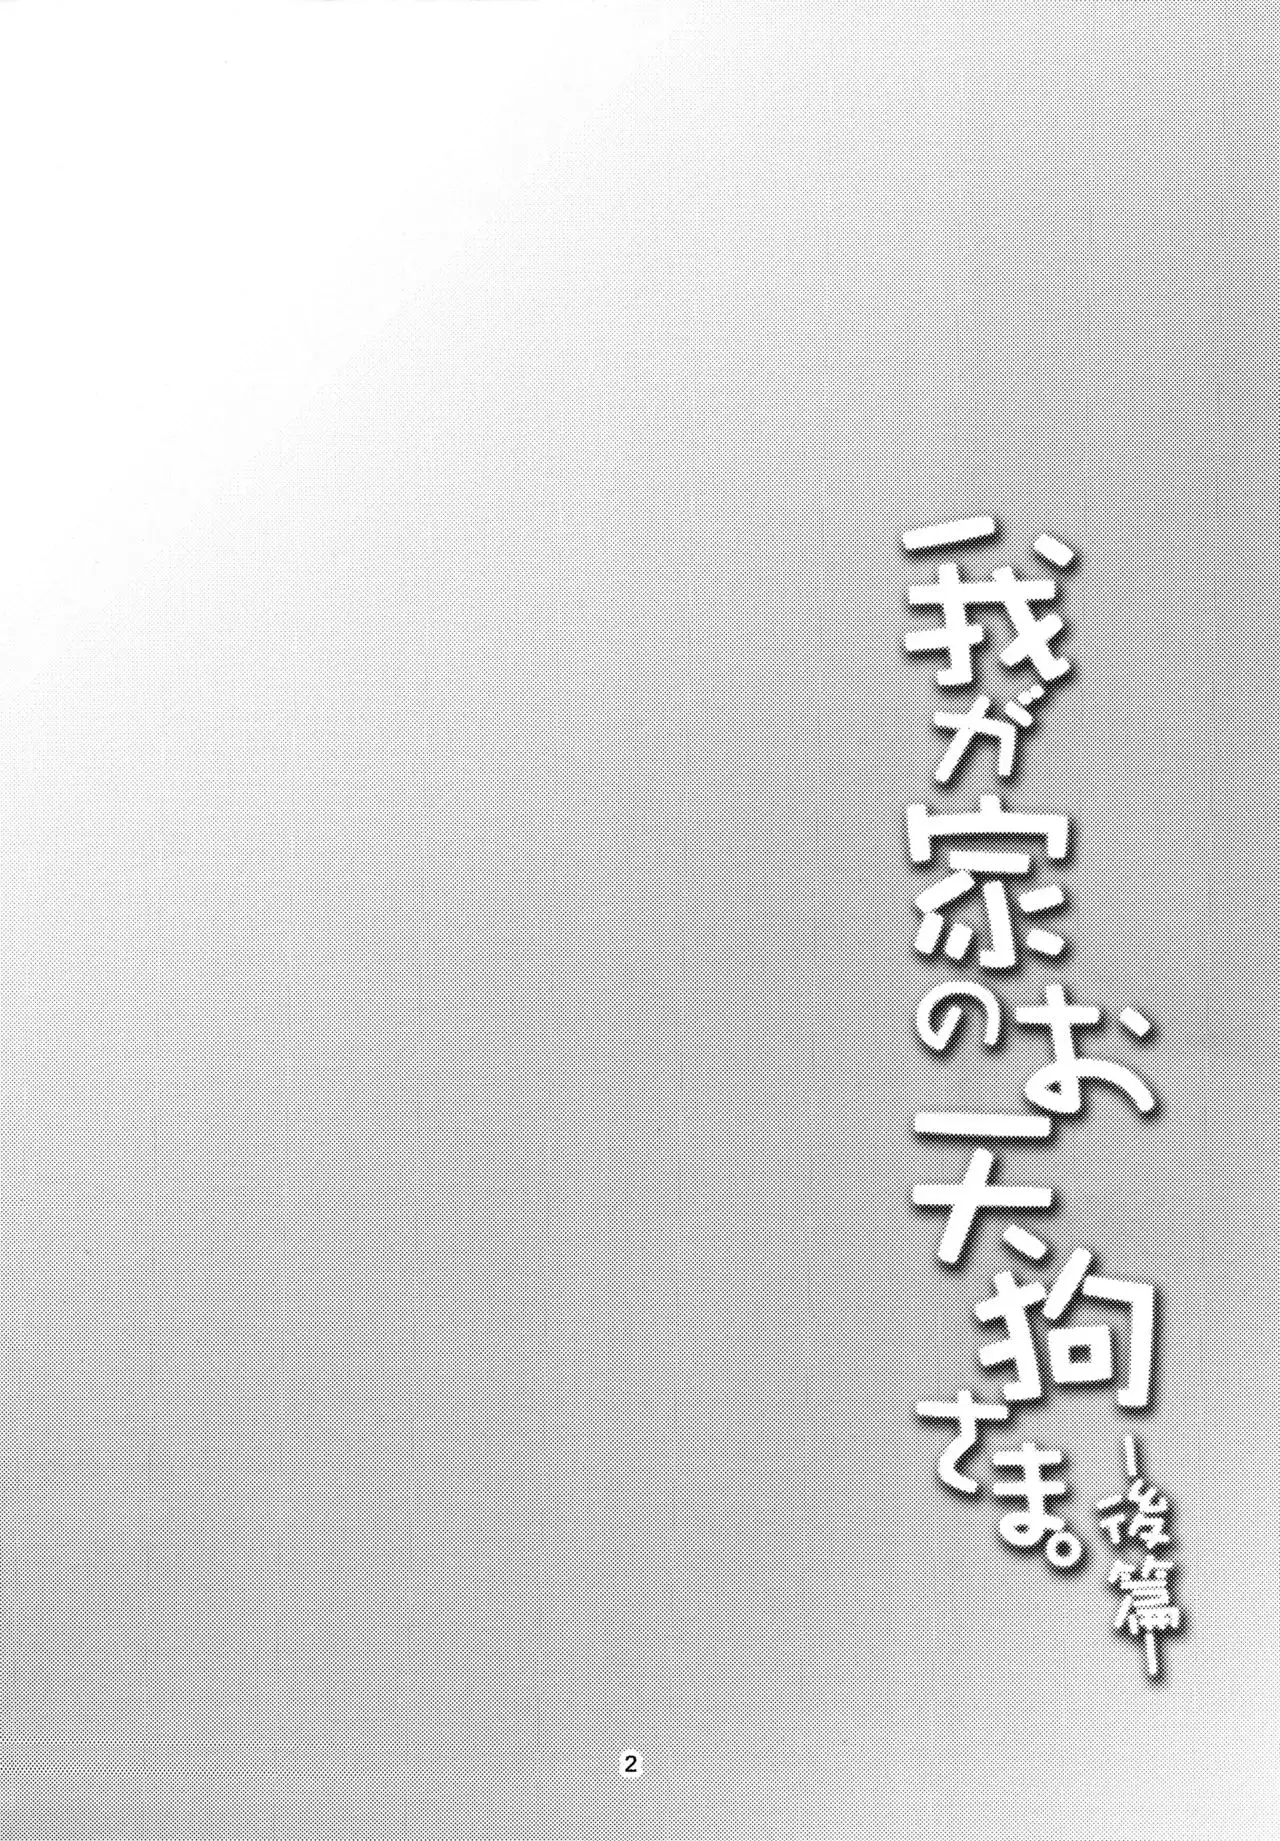 我が宗のお天狗さま。
-後篇-
2